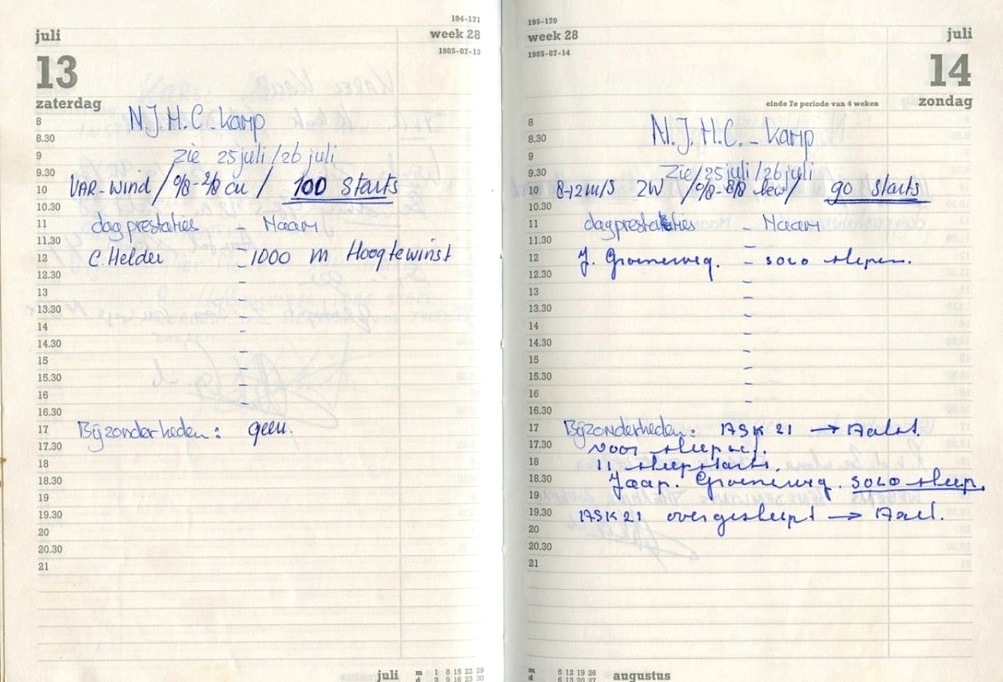 194-171
juli
week 28
1985-07-13
13
zaterdag
8
N.J.M.C.-kamp
8.30
9
zie 25 juli/26 juli
9.30
10
VAR-wind / 0/8-2/8 cu / 100 starts
10.30
11
dagprestaties - Naam
11.30
12
C. Helder - 1000 m Hoogtewinst
12.30
13
13.30
14
14.30
15
15.30
16
16.30
17
Bijzonderheden: geen.
17.30
18
18.30
19
19.30
20
20.30
21
juli
m 1 8 15 22 29
d 2 9 16 23 30
195-170
week 28
juli
1985-07-14
14
einde 7e periode van 4 weken
zondag
8
N.J.M.C.- kamp
8.30
9
Zie/25 juli/26 juli
9.30
10
8-12 m/s ZW / 90 starts
10.30
11
dagprestaties - Naam
11.30
12
J. Groeneweg. - solo slepen.
12.30
13
13.30
14
14.30
15
15.30
16
16.30
17
Bijzonderheden: ASK 21 →
17.30
voor
18
11 sleepstarts.
18.30
Jaap. Groeneweg. solo sleep.
19
19.30
ASK21 overgesleept → Axel.
20
20.30
21
m 5 12 19 26
d 6 13 20 27
augustus